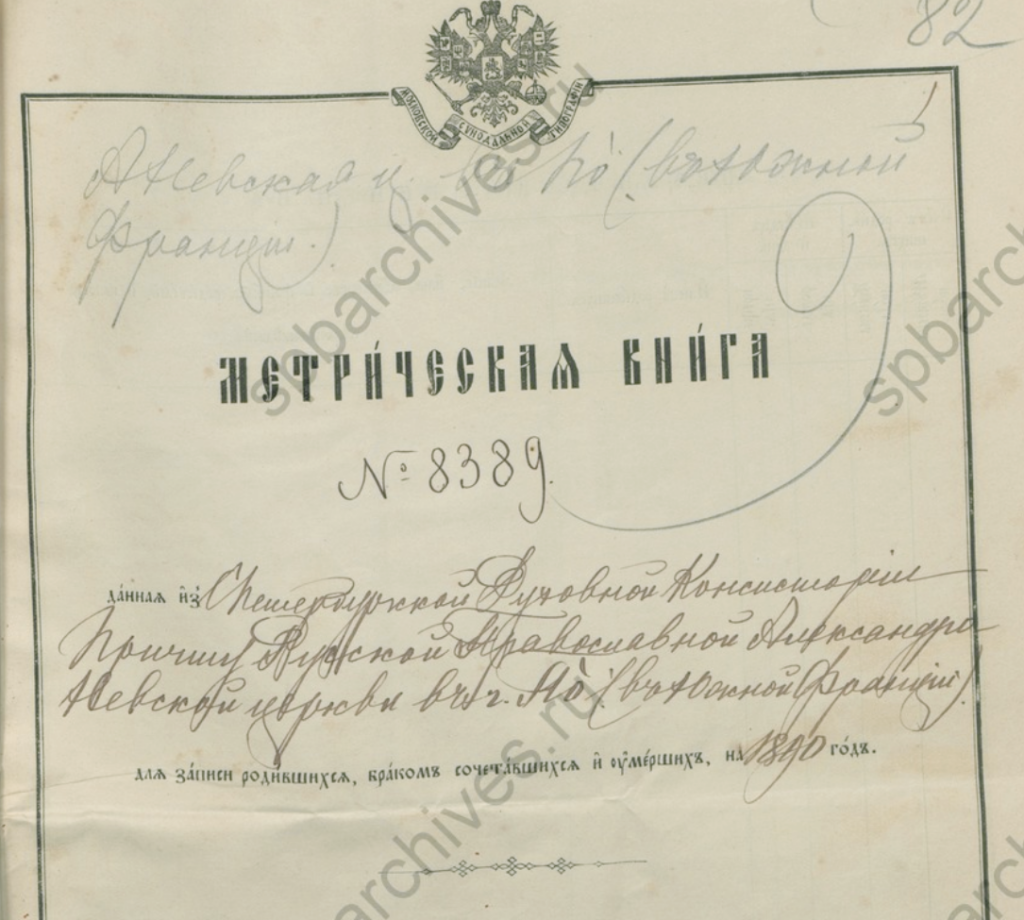 82
МОСКОВСКОЙ СѴНОДАЛЬНОЙ ТИПОГРАФІИ
А Невская ц. въ По (въ Южной
Франціи.)
МЕТРИ́ЧЕСКАѦ КНИ́ГА
№ 8389.
да́ннаѧ и҆з̾ СПетербургской Духовной Консисторіи
Причту Русской Православной Александро-
Невской церкви въ г. По (въ Южной Франціи).
длѧ за́писи роди́вшихсѧ, бра́комъ сочета́вшихсѧ и҆ ᲂу҆ме́ршихъ, на 1890 го́дъ.
spbarchives.ru
spbarchives.ru